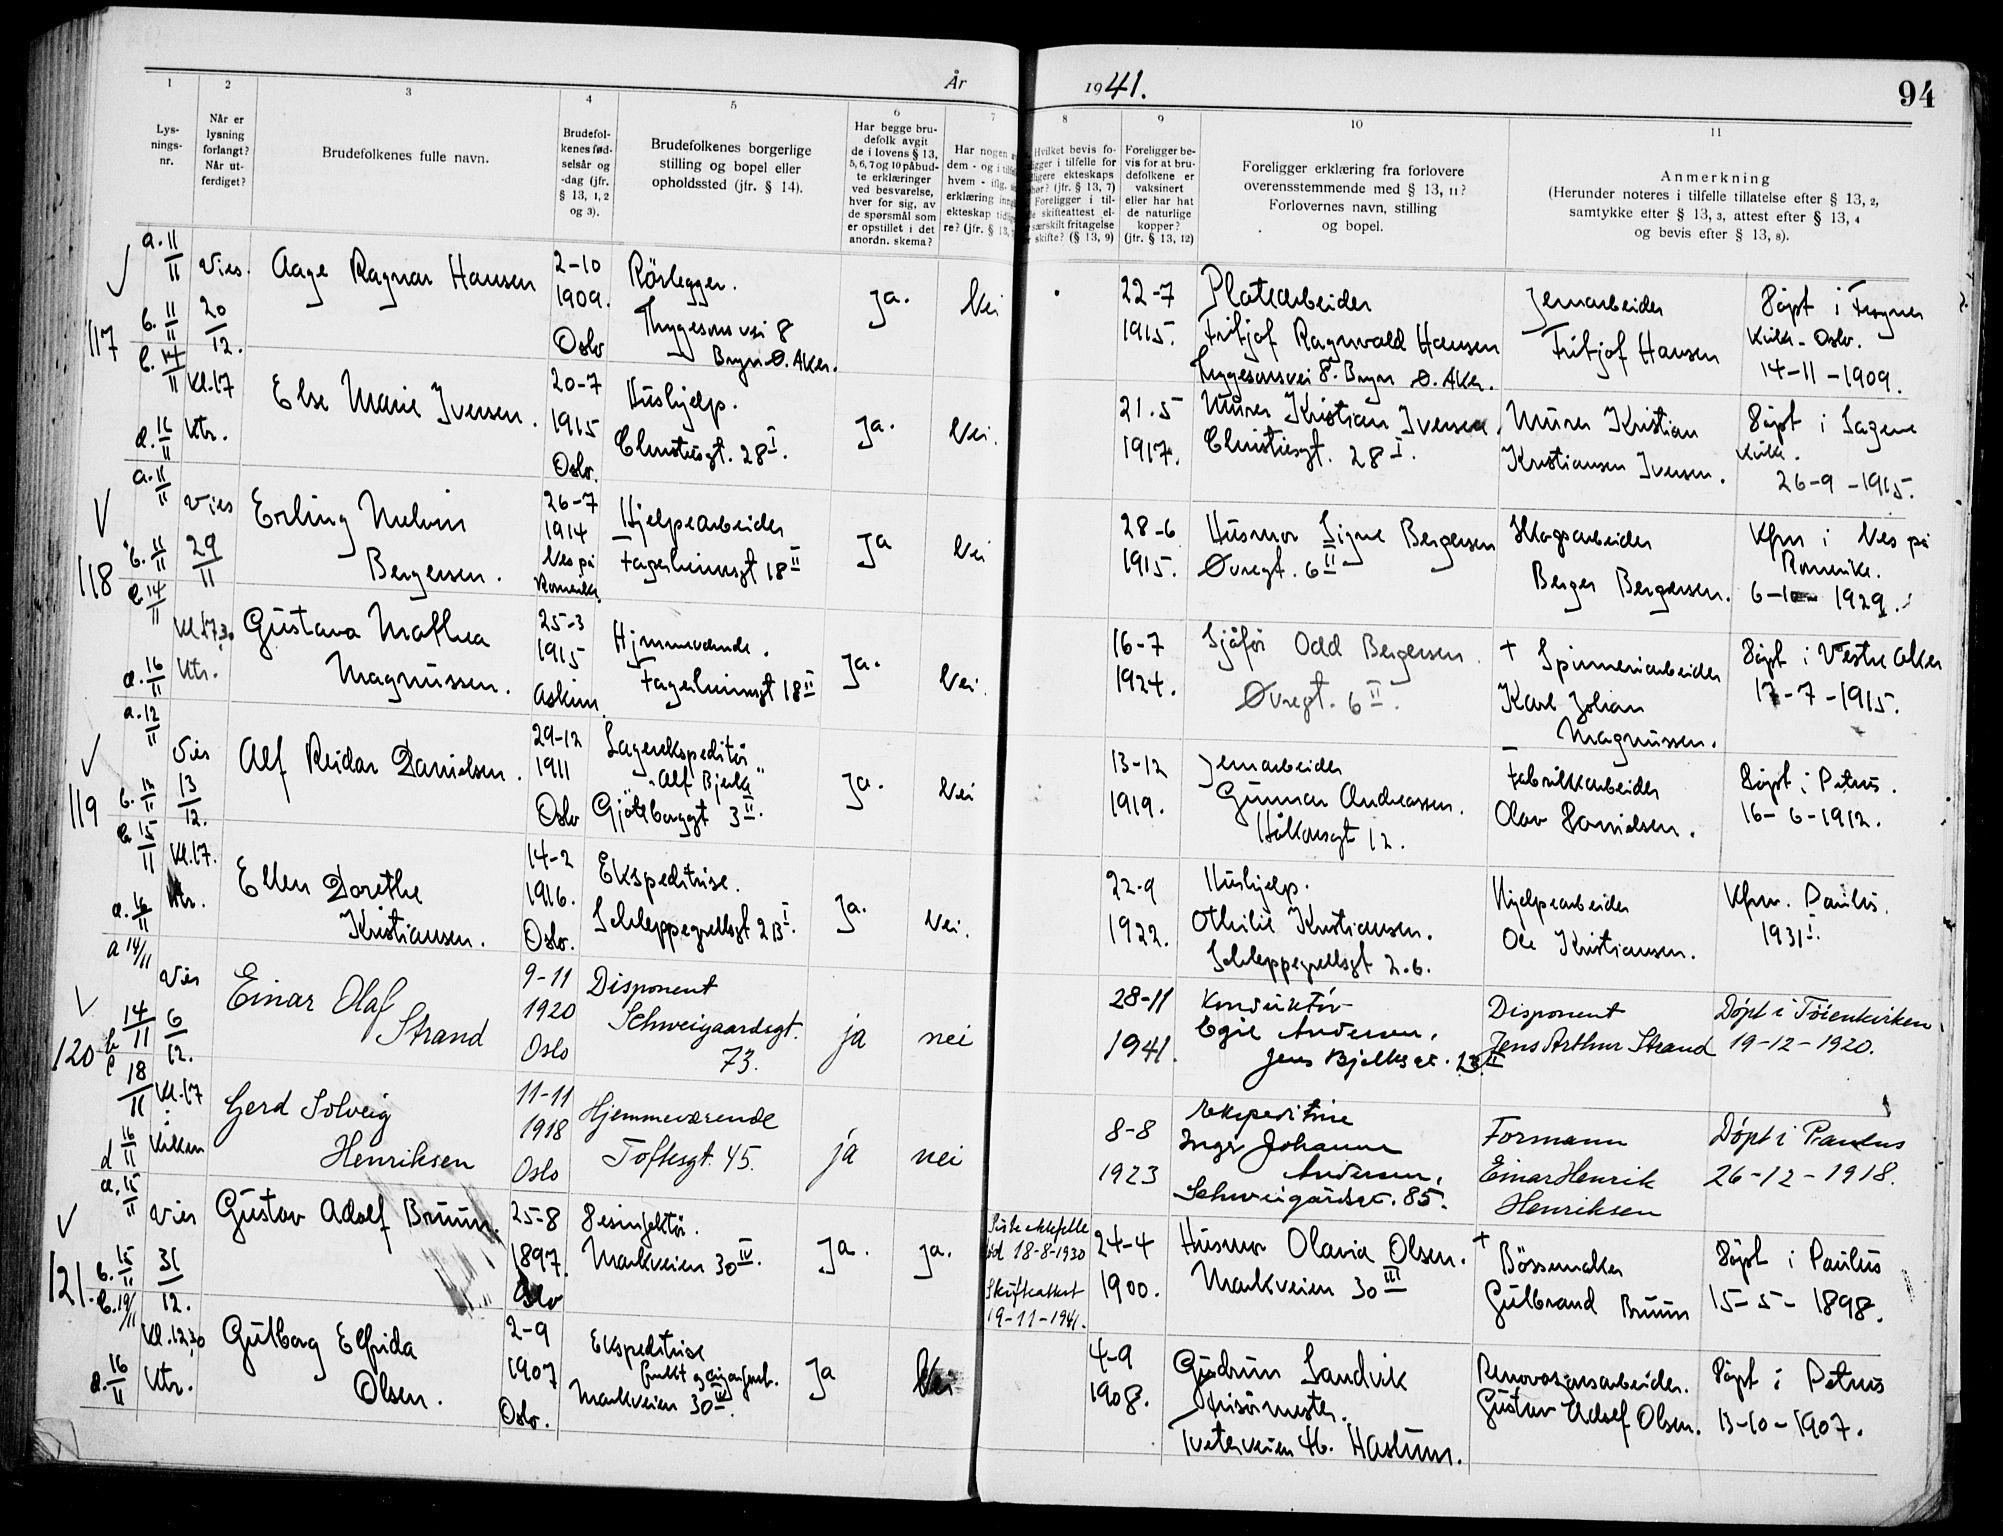 År
1941.
94
1
2
3
4
5
6
7
8
9
10
11
Lys-
nings-
nr.
Når er
lysning
forlangt?
Når ut-
ferdiget?
Brudefolkenes fulle navn.
Brudefol-
kenes fød-
selsår og
-dag (jfr.
§ 13, 1, 2
og 3).
Brudefolkenes borgerlige
stilling og bopel eller
opholdssted (jfr. § 14).
Har begge bru-
defolk avgit
de i lovens § 13,
5, 6, 7 og 10 påbud-
te erklæringer
ved besvarelse,
hver for sig, av
de spørsmål som
er opstillet i det
anordn. skema?
Har nogen
dem - og i
hvem - iflg.
erklæring
ekteskap
re? (jfr. § 13,
Hvilket bevis fo-
i tilfelle for
ekteskaps
(jfr. § 13, 7)
Foreligger i til-
skifteattest el-
særskilt fritagelse
skifte? (§ 13, 9)
Foreligger be-
vis for at bru-
defolkene er
vaksinert
eller har hat
de naturlige
kopper?
(jfr. § 13, 12)
Foreligger erklæring fra forlovere
overensstemmende med § 13, 11?
Forlovernes navn, stilling
og bopel.
Anmerkning
(Herunder noteres i tilfelle tillatelse efter § 13, 2,
samtykke efter § 13, 3, attest efter § 13, 4
og bevis efter § 13, 8).
117
a. 11/11
b. 11/11
Vies.
20/12.
Kl. 17
Ktr.
Aage Ragnar Hansen
2-10
1909.
Oslo
Rörlegger.
Thygesons vei 8
Bryn Ø. Aker.
Ja.
Nei
22-7
1915.
Platearbeider
Fritjof Ragnvald Hansen
Thygesonsvei 8. Bryn Ø. Aker.
Jernarbeider
Fritjof Hansen
Döpt i Frogner
Kirke - Oslo.
14-11-1909.
d. 16/11
Else Marie Iversen.
20-7
1915
Oslo.
Hushjelp.
Christiesgt. 28 I.
Ja.
Nei.
21.5
1917.
Murer Kristian Iversen.
Christiesgt. 28 I.
Murer Kristian
Kristiansen Iversen.
Döpt i Sagene
Kirke.
26-9-1915.
118
a. 11/11
b. 11/11
Vies
29/11
Kl. 17.30
Ktr.
Erling Melvin
Bergersen.
26-7
1914
Nes på
Romerike.
Hjelpearbeider
Fagerheimsgt 18 II
Ja
Nei
28-6
1915.
Husmor Signe Bergersen
Øvregt. 6 II
Skogsarbeider
Berger Bergersen.
Kfm i Nes på
Romerike.
1929.
d. 16/11
Gustava Mathea
Magnussen.
25-3
1915
Askim.
Hjemmevær­ende.
Fagerheimsgt 18 II
Ja.
Nei.
16-7
1924.
Sjåför Odd Bergersen.
Øvregt. 6 II.
+ Spinneriarbeider
Karl Johan
Magnussen.
Döpt i Vestre Aker
17-7-1915.
119
a. 12/11
Vies
13/12.
Kl. 17.
Ktr.
Alf Reidar Danielsen.
29-12
1911
Oslo
Lagerekspeditör
"Alf Bjerke"
Gjöteborggt 3 II.
Ja.
Nei
13-12
1919.
Jernarbeider
Gunnar Andreassen.
Håkonsgt 12.
Fabrikkarbeider
Olav Danielsen.
Döpt i Petrus.
16-6-1912.
d. 16/11
Ellen Dorethe
Kristiansen.
14-2
1916.
Oslo.
Ekspeditrise.
Schleppegrellsgt 2 B I.
Ja.
Nei.
22-9
1922.
Hushjelp.
Othilie Kristiansen.
Schleppegrellsgt 2.b.
Hjelpearbeider
Ole Kristiansen.
Kfm. Paulus.
1931 I.
120
a 14/11
b 14/11
c 18/11
Vies
6/12.
Kl. 17
Kirken
Einar Olaf
Strand
9-11
1920
Oslo
Disponent
Schweigaardsgt.
73.
ja
nei
28-11
1941.
Konduktör
Egil Andersen,
Jens Bjelkesgt.
Disponent
Jens Arthur Strand
Döpt i Töienkirken
19-12-1920.
d 16/11
Gerd Solveig
Henriksen
11-11
1918
Oslo
Hjemmeværende
Toftesgt. 45.
ja
nei
8-8
1923
Ekspeditrise
Inger Johanne
Andersen,
Schweigårdsgt. 85.
Formann
Einar Henrik
Henriksen
Döpt i Paulus
26-12-1918.
121.
a. 15/11
b. 15/11
c. 19/11
Vies
31/12.
Kl. 12.30
Ktr.
Gustav Adolf Bruun.
25-8
1897.
Oslo
Desinfektör.
Markveien 30 IV.
Ja.
Ja.
Siste ektefelle
död 18-8-1930
Skifteattest
19-11-1941.
24-4
1900.
Husmor Olavia Olsen.
Markveien 30 III
+ Bössemaker
Gulbrand Bruun
Döpt i Paulus
15-5-1898.
d. 16/11
Gulborg Elfrida
Olsen.
2-9
1907
Oslo.
Ekspeditrise
frukt og
Markveien 30 IV.
Ja
Nei
4-9
1908.
Gudrun Sandvik
Frisörmester.
Tveterveien 46. Haslum.
Renovasjonsarbeider.
Gustav Adolf Olsen.
Döpt i Petrus
13-10-1907.